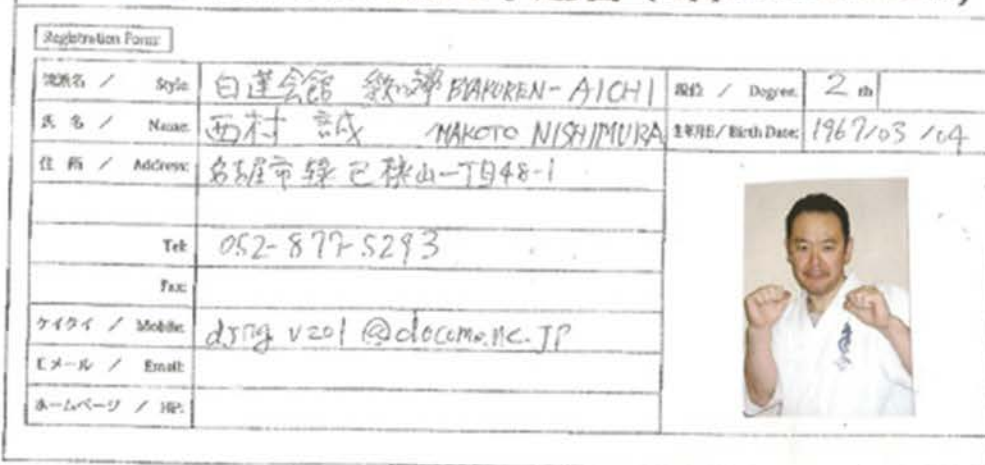 Registration Form
流派名 / Style: 白蓮会館 BYAKUREN-AICHI
段位 / Degree: 2 th
氏名 / Name: 西村 誠 /MAKOTO NISHIMURA
生年月日 / Birth Date: 1967/03/04
住所 / Address: 名古屋市緑区桃山一丁目48-1
Tel: 052-877-5293
Fax:
ケイタイ / Mobile: @docomo.ne.JP
Eメール / Email:
ホームページ / HP: